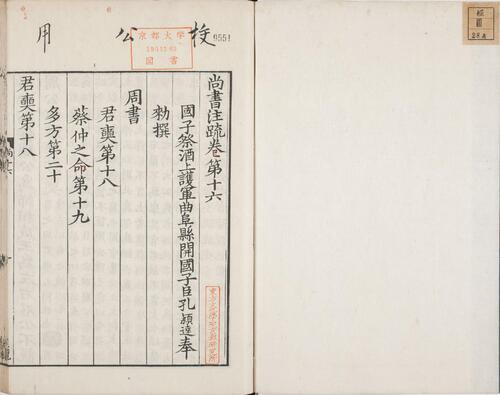 校公用
京都大學
圖書
9551
尚書注疏卷第十六
國子祭酒上護軍曲阜縣開國子臣孔穎達奉
勑撰
周書
君奭第十八
蔡仲之命第十九
多方第二十
君奭第十八